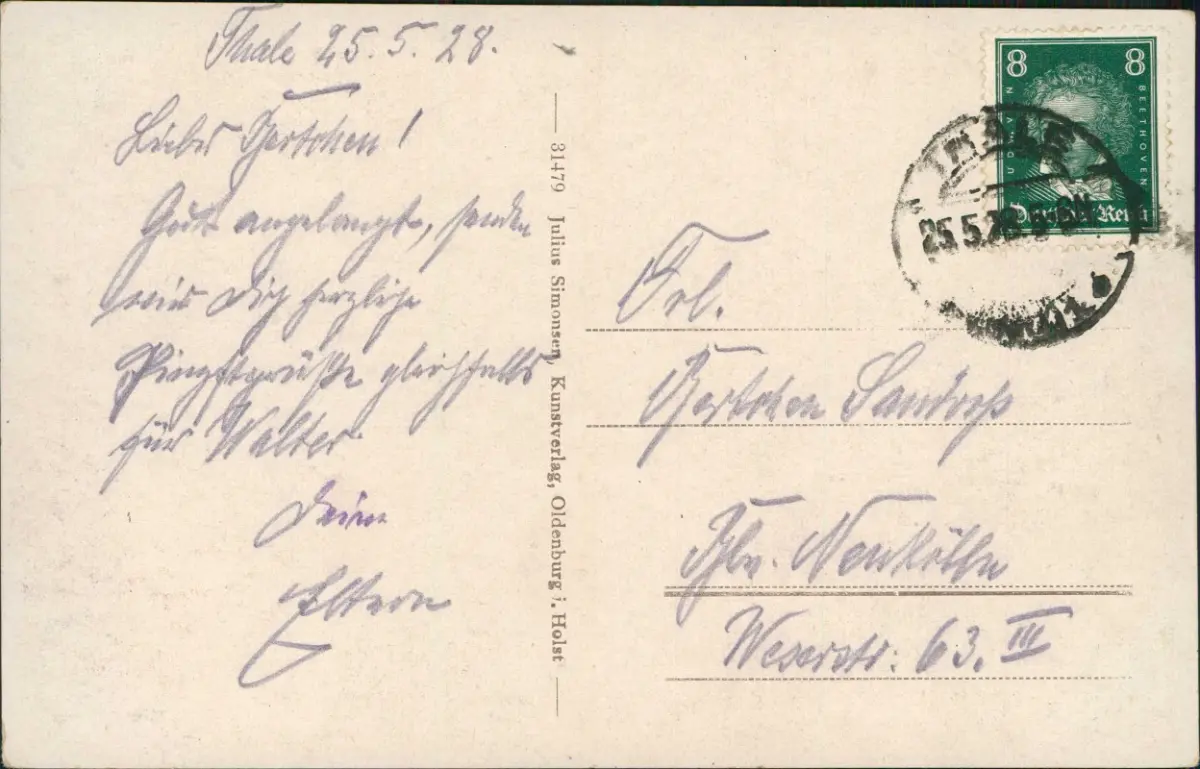 Thale 25.5.28.
Liebes Gertchen!
Gut angelangt, senden
wir Dir herzliche
Pingstgrüße gleichfalls
für Walter
Deine
Eltern
31479 Julius Simonsen, Kunstverlag, Oldenburg i. Holst
8 8
BEETHOVEN
Deutsches Reich
THALE
25.5.28.
Frl.
Gertchen
Neukölln
Weserstr: 63. III